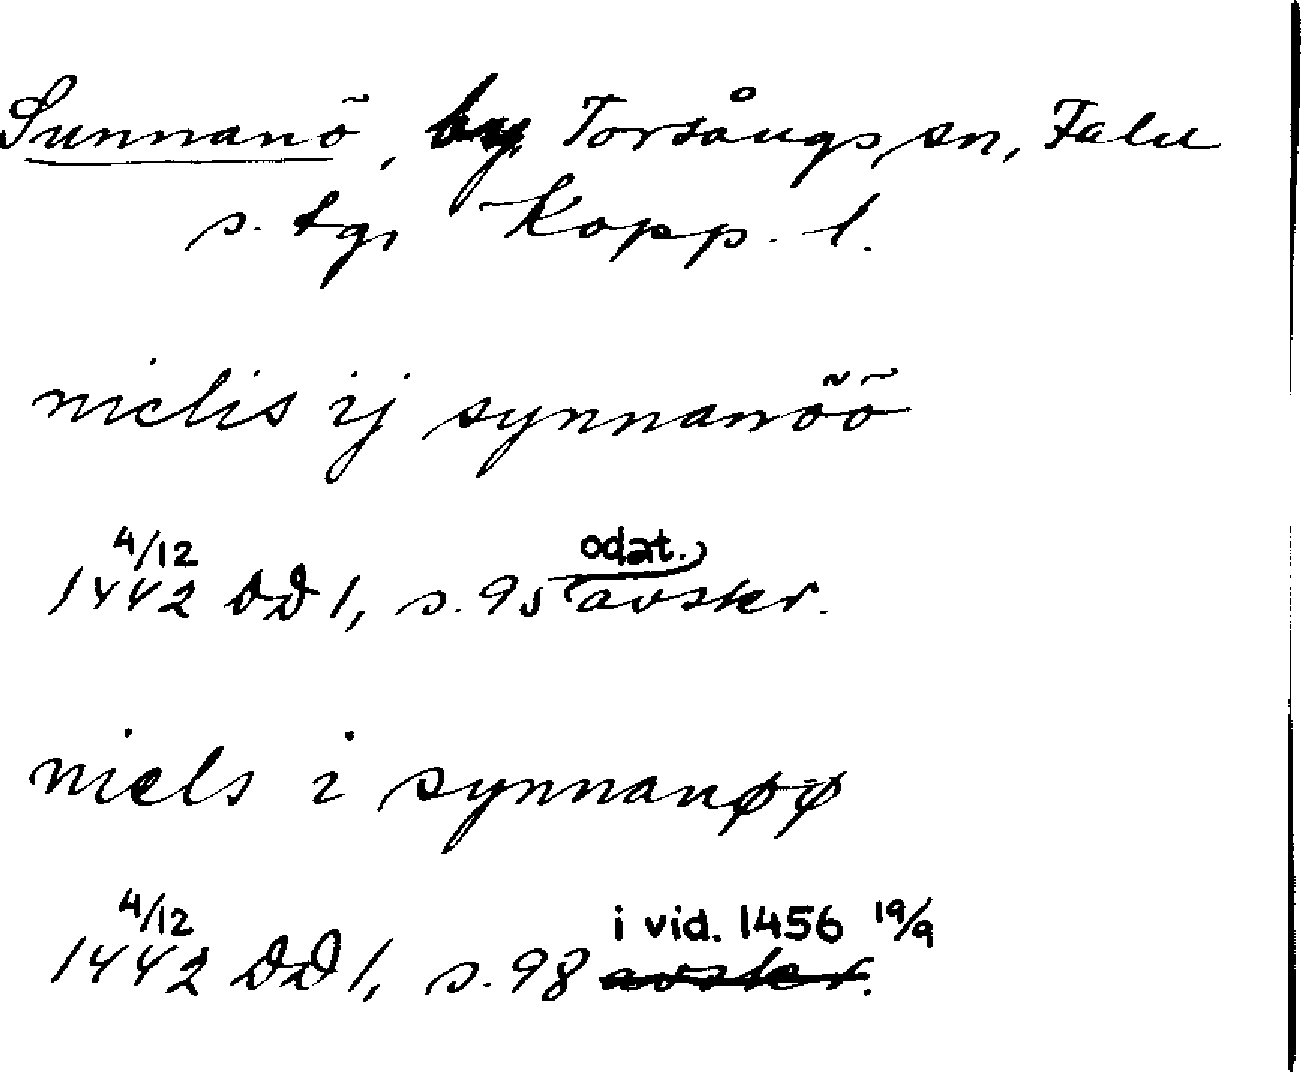 Sunnanö, by, Torsångs sn, Falu
s. tg, Kopp. l.
nielis ij synnanöö
4/12 odat.
1442 DD 1, s. 95 avskr.
niels i synnanøø
4/12 i vid. 1456 19/9
1442 DD 1, s. 98 avskr.